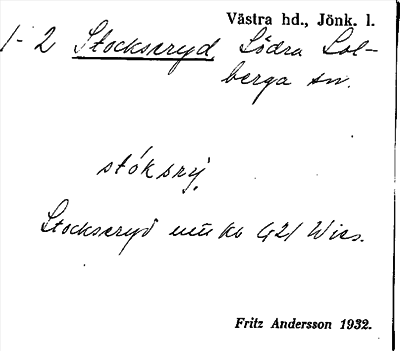 Västra hd., Jönk. l.
1-2 Stockseryd Södra Sol-
berga sn.
stóksry
Stockseryd
Fritz Andersson 1932.